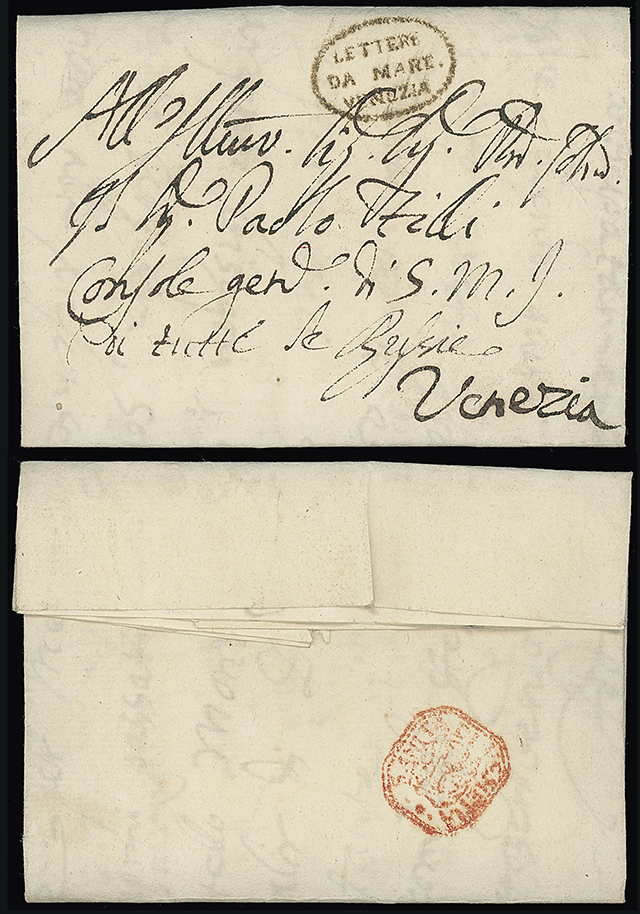 LETTERE
DA MARE.
VENEZIA
All Illmo. Sig. Sig. Prn. Colmo.
Il Sig. Paolo
Console genl. di S. M. I.
di tutte le Russie
Venezia